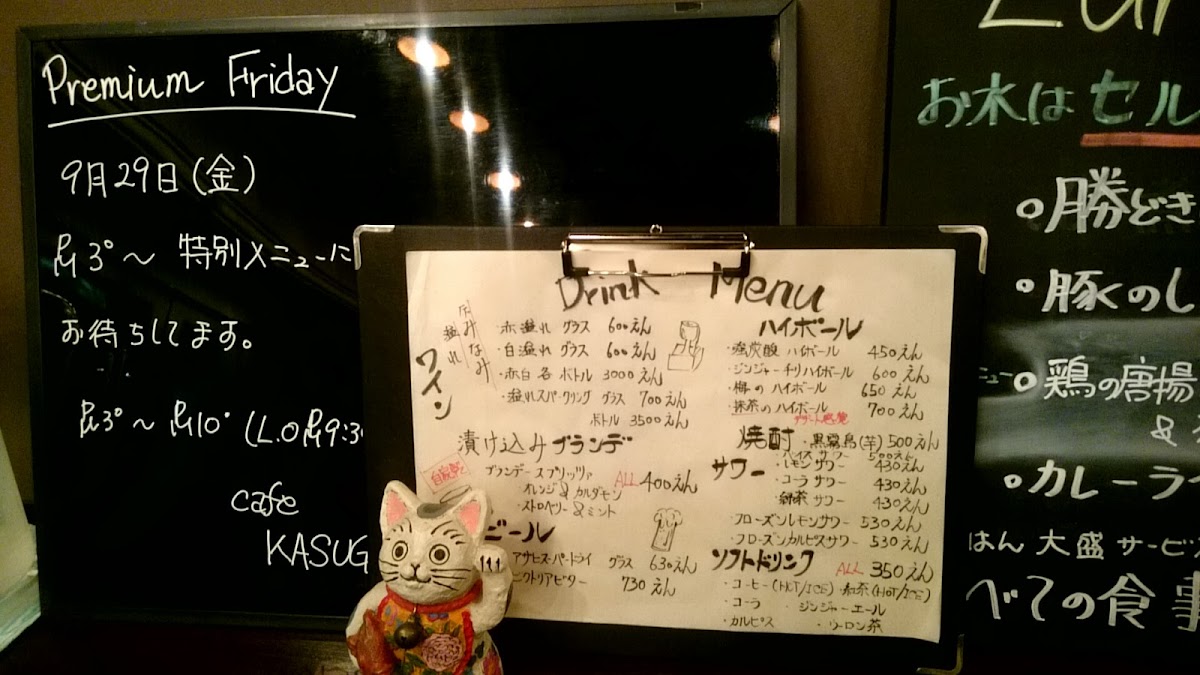 Premium Friday
9月29日(金)
PM3°～ 特別メニューに
お待ちしてます。
PM3°～PM10° (L.O PM9:3
cafe
KASUG
Drink Menu
ワイン
なみなみ
溢れ
・赤溢れ グラス 600えん
・白溢れ グラス 600えん
・赤白各ボトル 3000えん
・溢れスパークリング グラス 700えん
ボトル 3500えん
漬け込みブランデ
自家製
ブランデースプリッツァ
オレンジ&カルダモン
ストロベリー&ミント
ALL 400えん
ビール
アサヒスーパードライ グラス 630えん
ビクトリアビター 730えん
ハイボール
・強炭酸 ハイボール 450えん
・ジンジャーチリハイボール 600えん
・梅のハイボール 650えん
・抹茶のハイボール 700えん
デザート感覚
焼酎 ・黒霧島(芋) 500えん
サワー
・バイスサワー 500えん
・レモンサワー 430えん
・コーラサワー 430えん
・緑茶サワー 430えん
・フローズンレモンサワー 530えん
・フローズンカルピスサワー 530えん
ソフトドリンク ALL 350えん
・コーヒー(HOT/ICE)・紅茶(HOT/ICE)
・コーラ ・ジンジャーエール
・カルピス ・ウーロン茶
お水はセル
・勝どき
・豚くのし
ニュー
・鶏の唐揚
&
・カレーラ
はん 大盛 サービ
べての食事